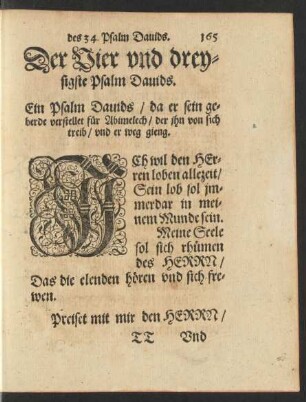 des 34. Psalm Dauids. 165
Der Vier vnd drey-
sigste Psalm Dauids.
Ein Psalm Dauids / da er sein ge-
berde verstellet für Abimelech / der jhn von sich
treib / vnd er weg gieng.
ICh wil den HEr-
ren loben allezeit /
Sein lob sol jm-
merdar in mei-
nem Munde sein.
Meine Seele
sol sich rhümen
des HERRN /
Das die elenden hören vnd sich fre-
wen.
Preiset mit mir den HERRN /
TT Vnd